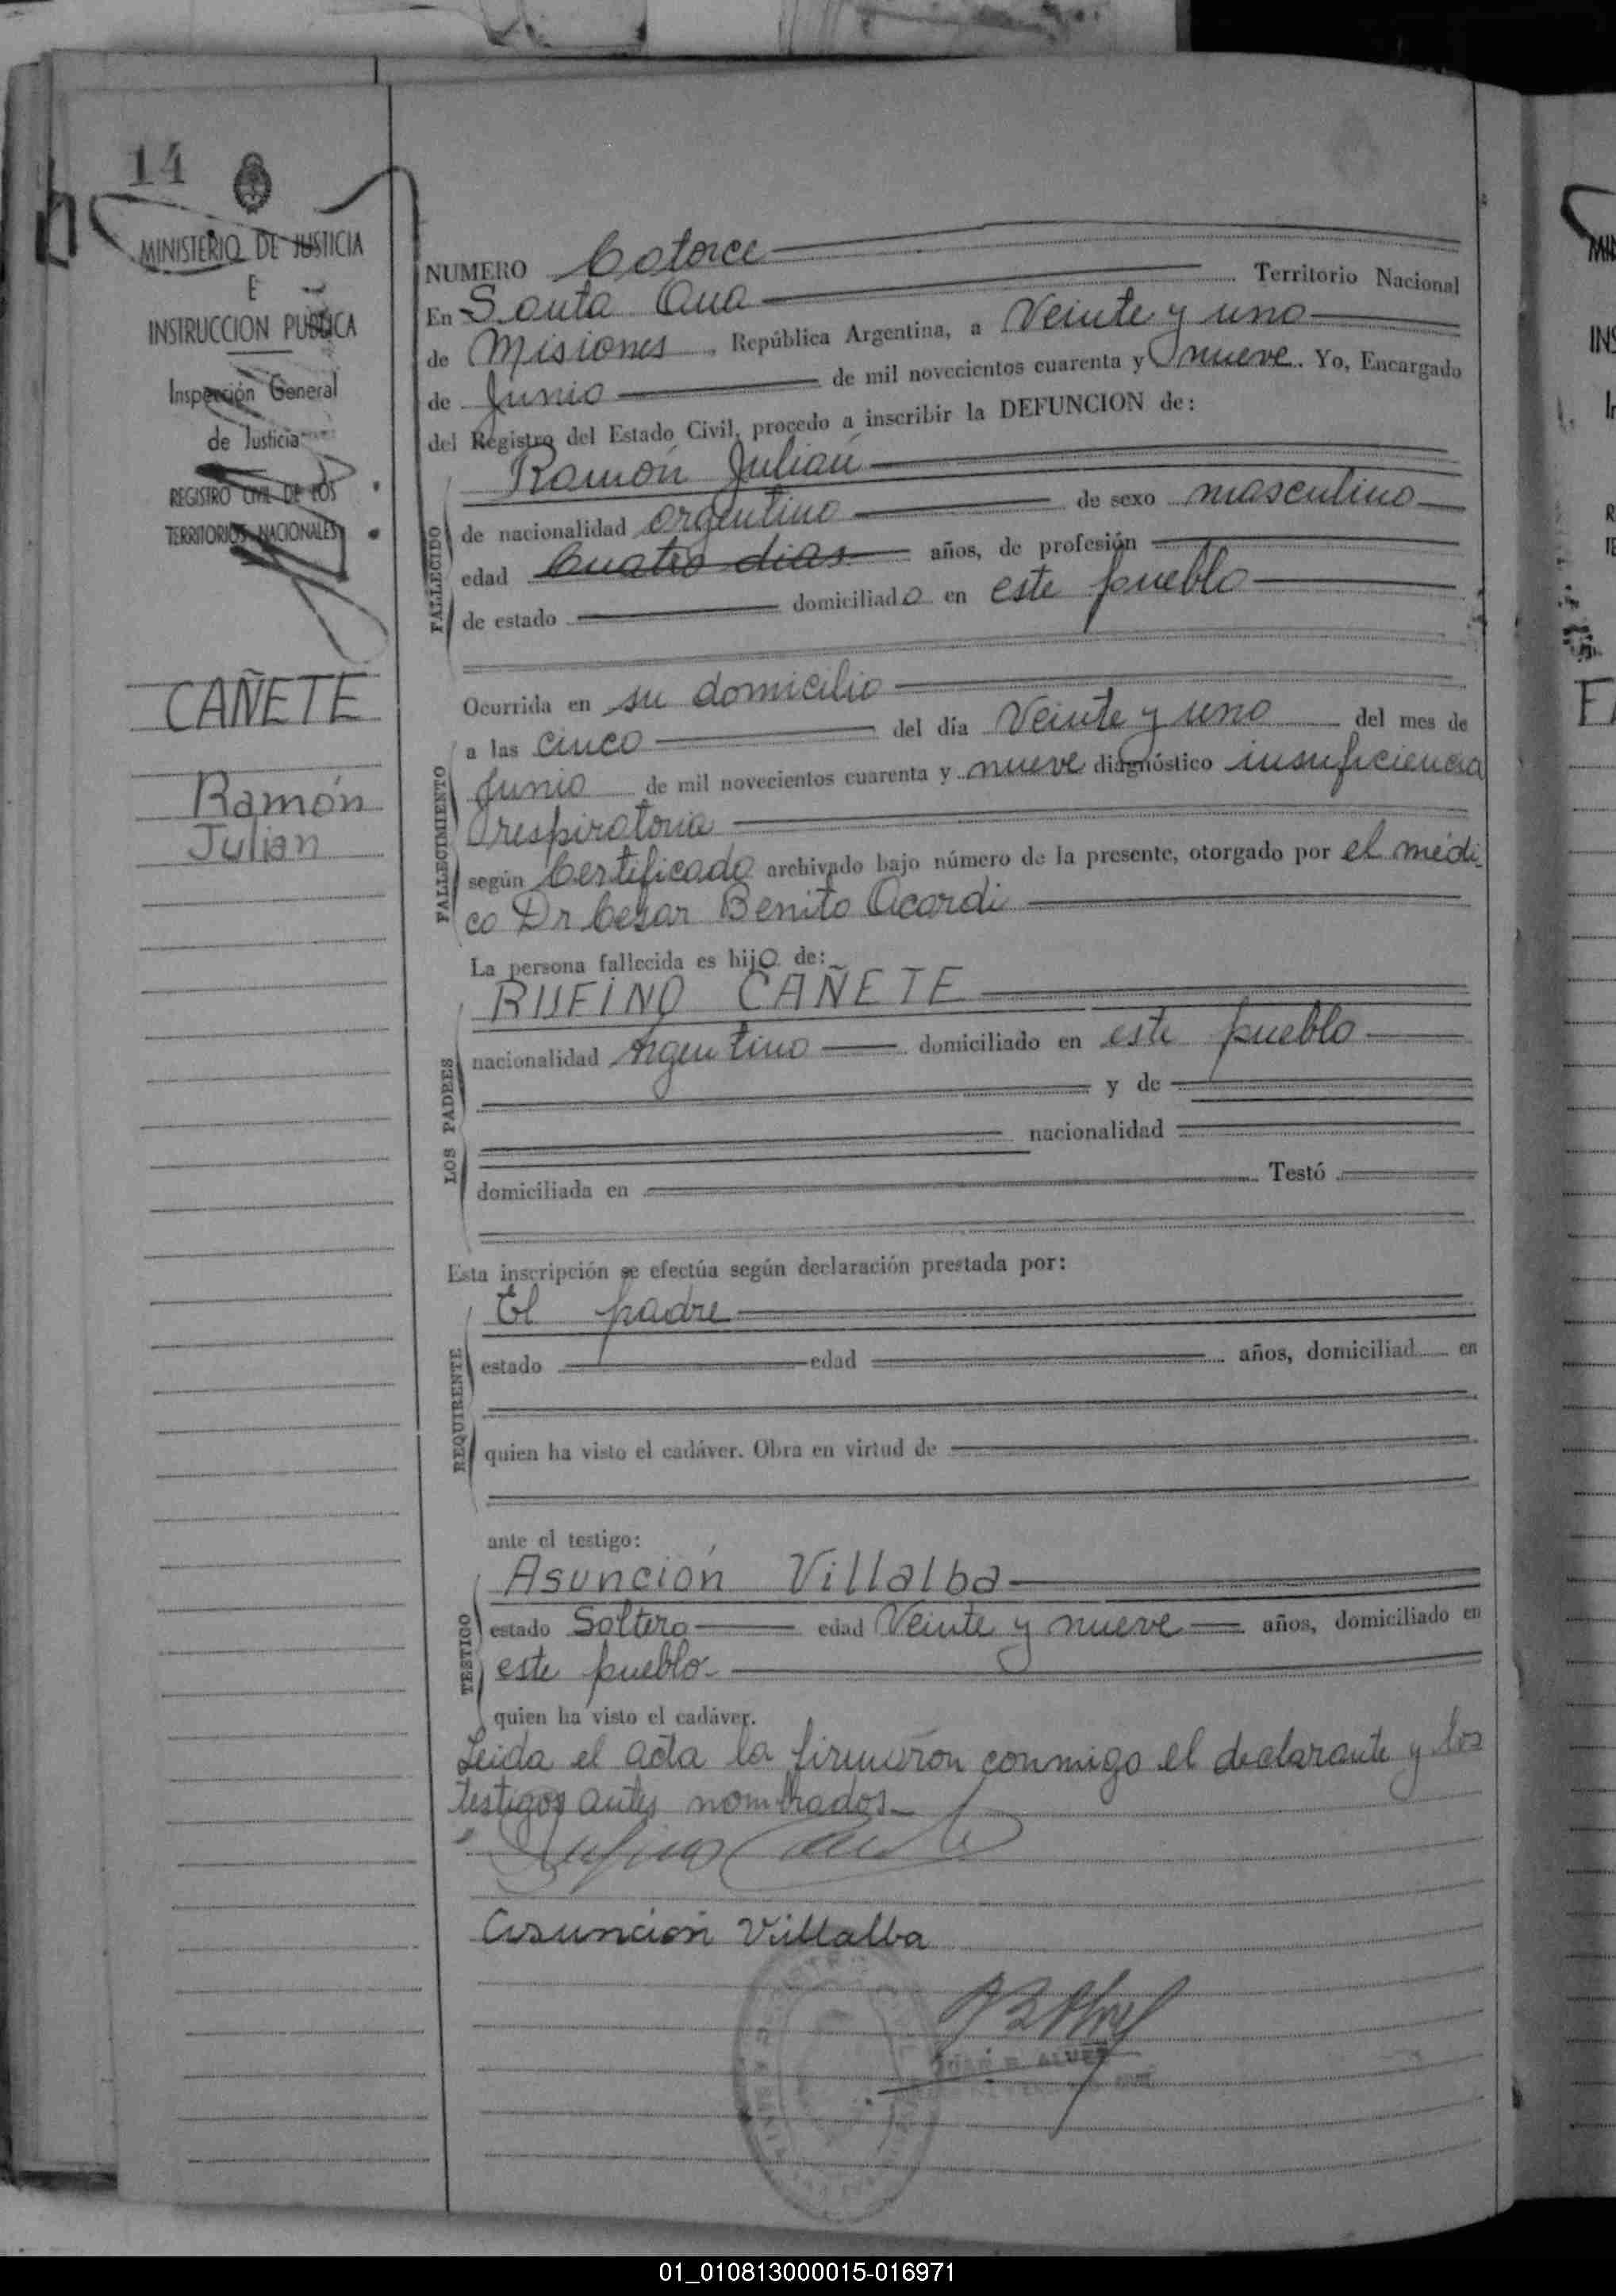 14
MINISTERIO DE JUSTICIA
E
INSTRUCCION PUBLICA
Inspección General
de Justicia
REGISTRO CIVIL DE LOS
TERRITORIOS NACIONALES
CAÑETE
Ramón
Julian
NUMERO Catorce
En Santa Ana Territorio Nacional
de Misiones, República Argentina, a Veinte y uno
de Junio de mil novecientos cuarenta y nueve. Yo, Encargado
del Registro del Estado Civil, procedo a inscribir la DEFUNCION de:
FALLECIDO
Ramón Julián
de nacionalidad argentino de sexo masculino
edad Cuatro dias años, de profesión
de estado domiciliado en este pueblo
FALLECIMIENTO
Ocurrida en su domicilio
a las cinco del día Veinte y uno del mes de
Junio de mil novecientos cuarenta y nueve diagnóstico insuficiencia
respiratoria
según Certificado archivado bajo número de la presente, otorgado por el médi
co Dr Cesar Benito Acardi
La persona fallecida es hijo de:
LOS PADRES
RUFINO CAÑETE
nacionalidad Argentino domiciliado en este pueblo
y de
nacionalidad
domiciliada en Testó
Esta inscripción se efectúa según declaración prestada por:
REQUIRENTE
El padre
estado edad años, domiciliad en
quien ha visto el cadáver. Obra en virtud de
ante el testigo:
TESTIGO
Asunción Villalba
estado Soltero edad Veinte y nueve años, domiciliado en
este pueblo-
quien ha visto el cadáver.
Leida el acta la firmaron conmigo el declarante y los
testigos antes nombrados-
Rufino Cañete
Asunción Villalba
JUAN B. ALVEZ
01_010813000015-016971